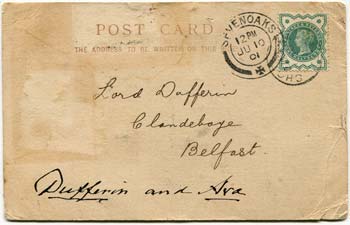 POST CARD
THE ADDRESS TO BE WRITTEN ON THIS
SEVENOAKS
12 PM
JU 10
01
Lord Dufferin
Clandeboye
Belfast.
Dufferin and Ava